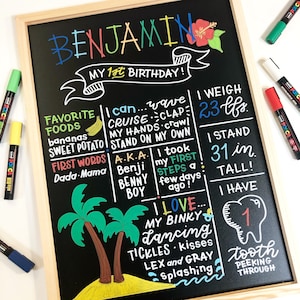 BENJAMIN
MY 1st BIRTHDAY!
FAVORITE
FOODS
bananas
SWEET POTATO
FIRST WORDS
Dada · Mama
I can... wave
CRUISE · CLAP
MY HANDS · crawl
STAND ON MY OWN
A.K.A.
Benji
BENNY
BOY
I took
my FIRST
STEPS a
few days
ago!
I LOVE...
MY BINKY
dancing
TICKLES · kisses
LEX and GRAY
splashing
I WEIGH
23 lbs.
I STAND
31 in.
TALL!
I HAVE
1
tooth
PEEKING
THROUGH